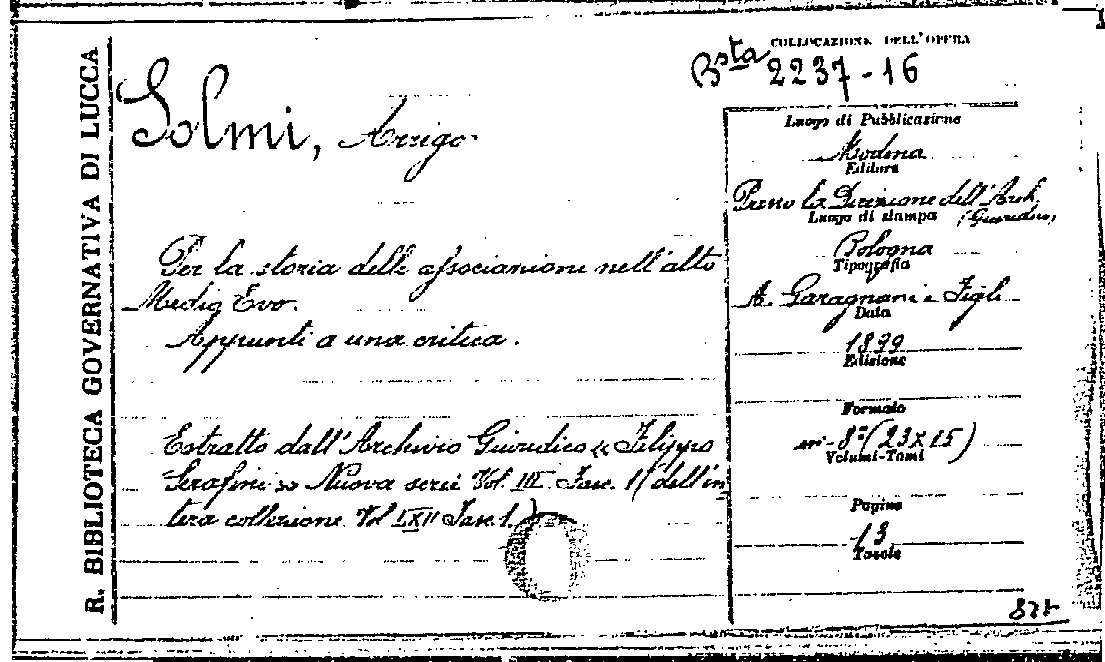 R. BIBLIOTECA GOVERNATIVA DI LUCCA
COLLOCAZIONE DELL'OPERA
Bsta 2237-16
Solmi, Arrigo
Per la storia delle associazioni nell'alto
Medio Evo.
Appunti a una critica.
Estratto dall'Archivio Giuridico « Filippo
Serafini » Nuova serie Vol. III Fasc. 1 (dell'in
tera collezione Vol LXII Fasc. 1.)
Luogo di Pubblicazione
Modena
Editore
Presso la Direzione dell'Arch.
(Giuridico)
Luogo di stampa
Bologna
Tipografia
A. Garagnani e Figli
Data
1899
Edizione
Formato
in-8° (23x15)
Volumi-Tomi
Pagine
13
Tavole